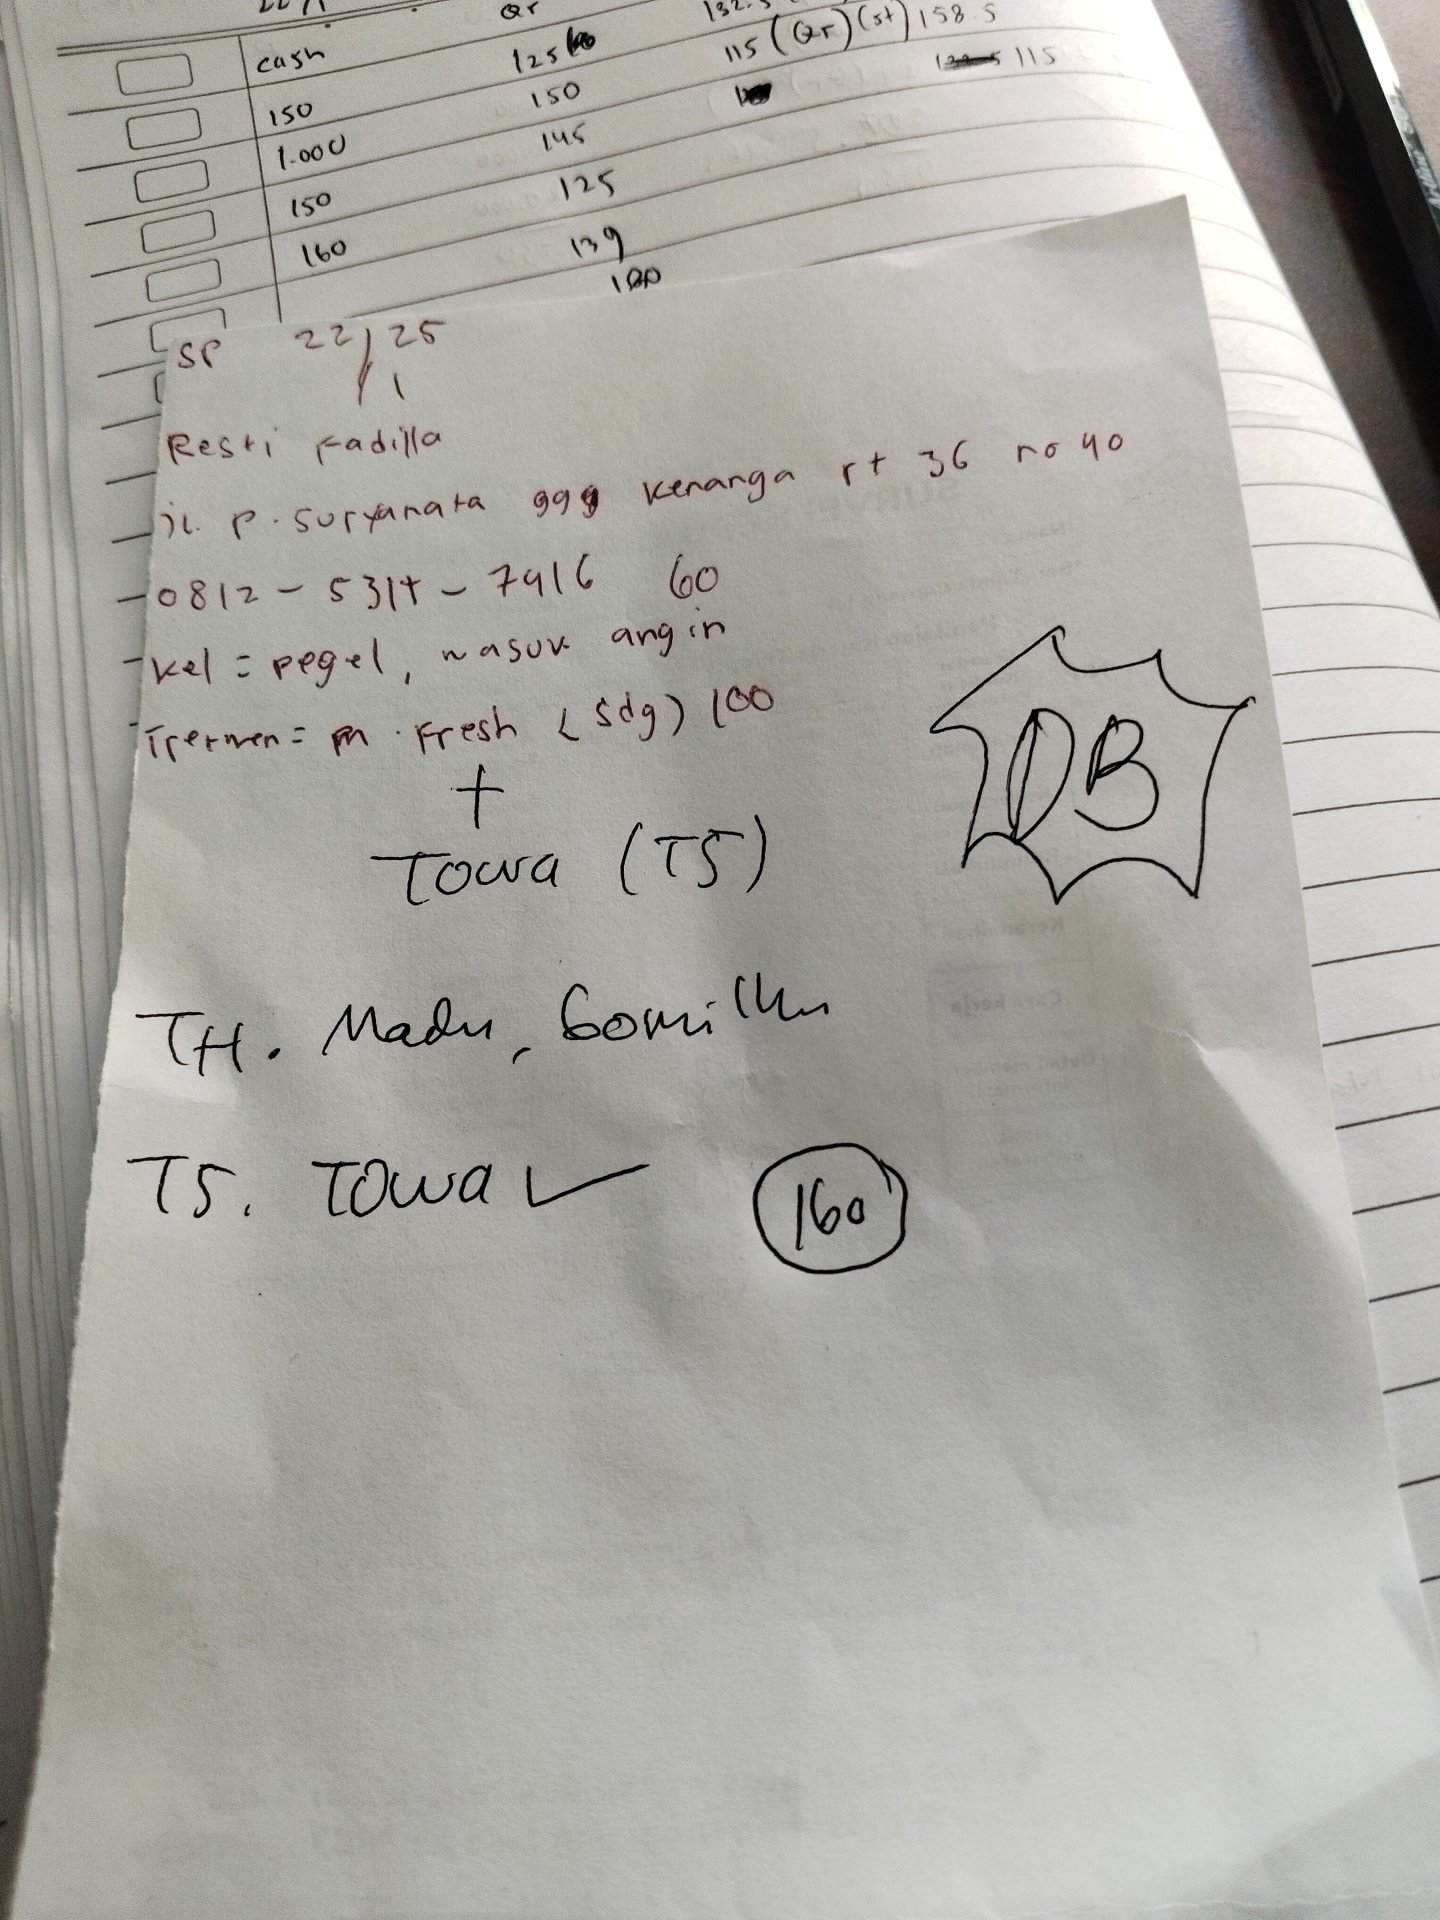 22/1
cash
Qr
132.5
125
115 (Qr) (st) 158.5
150
150
115
1.000
145
150
125
160
139
SP 22/1 25
Resti Fadilla
jl. P. Suryanata ggg kenanga rt 36 no 40
60
kel = pegel, masuk angin
Treatmen = m. Fresh (sdg) 100
+
Towa (TS)
DB
TH. Madu,
TS. Towa ✓
160